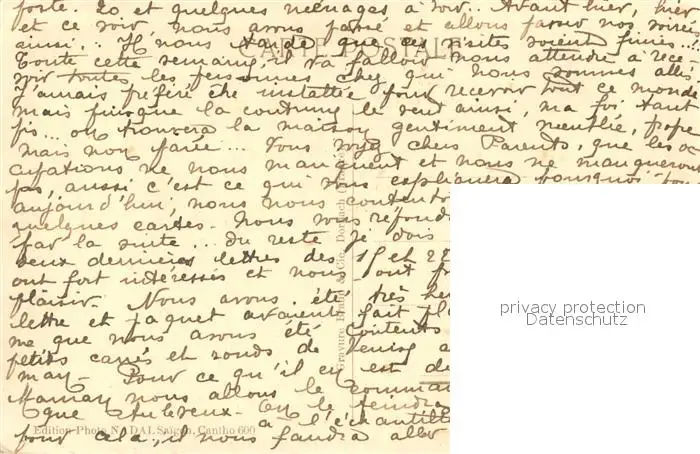 forte. 20 et quelques ménages à voir.. Avant hier, hier
et ce soir, nous avons passé et allons passer nos soirées
ainsi.. Il nous tarde que ces visites soient finies...
CARTE POSTALE
Toute cette semaine, il va falloir nous attendre à rece-
voir toutes les personnes chez qui nous sommes allés
J'aurais préféré être installée pour recevoir tout ce monde
mais puisque la coutume le veut ainsi, ma foi tant
pis... on trouvera la maison gentiment meublée, propre
mais non parée... Vous voyez chers Parents, que les oc
cupations ne nous manquent et nous ne manquerons
pas, aussi c'est ce qui vous expliquera pourquoi
aujourd'hui, nous nous content
quelques cartes. Nous vous répond
par la suite... Du reste je dois
deux dernières lettres des 15 et 22
ont fort intéressés et nous ont
plaisir. Nous avons été très he
lettre et paquet avaient fait pl
me que nous avons été contents
petits carrés et ronds de Venise a
may. Pour ce qu'il en est de
Maman nous allons le comman
que
à l'échantill
pour cela, il nous faudra aller
Gravure Braun & Cie, Dornach
Edition Photo NADAL Saïgon, Cantho 600
privacy protection
Datenschutz